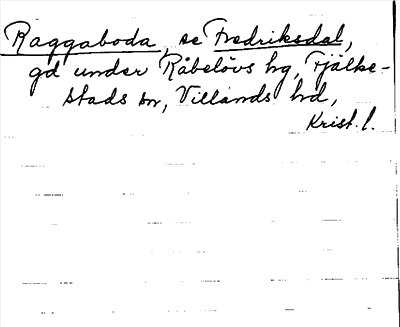 Raggaboda, se Fredriksdal,
gd under Råbelövs hg, Fjälke-
stads sn, Villands hd,
Krist. l.